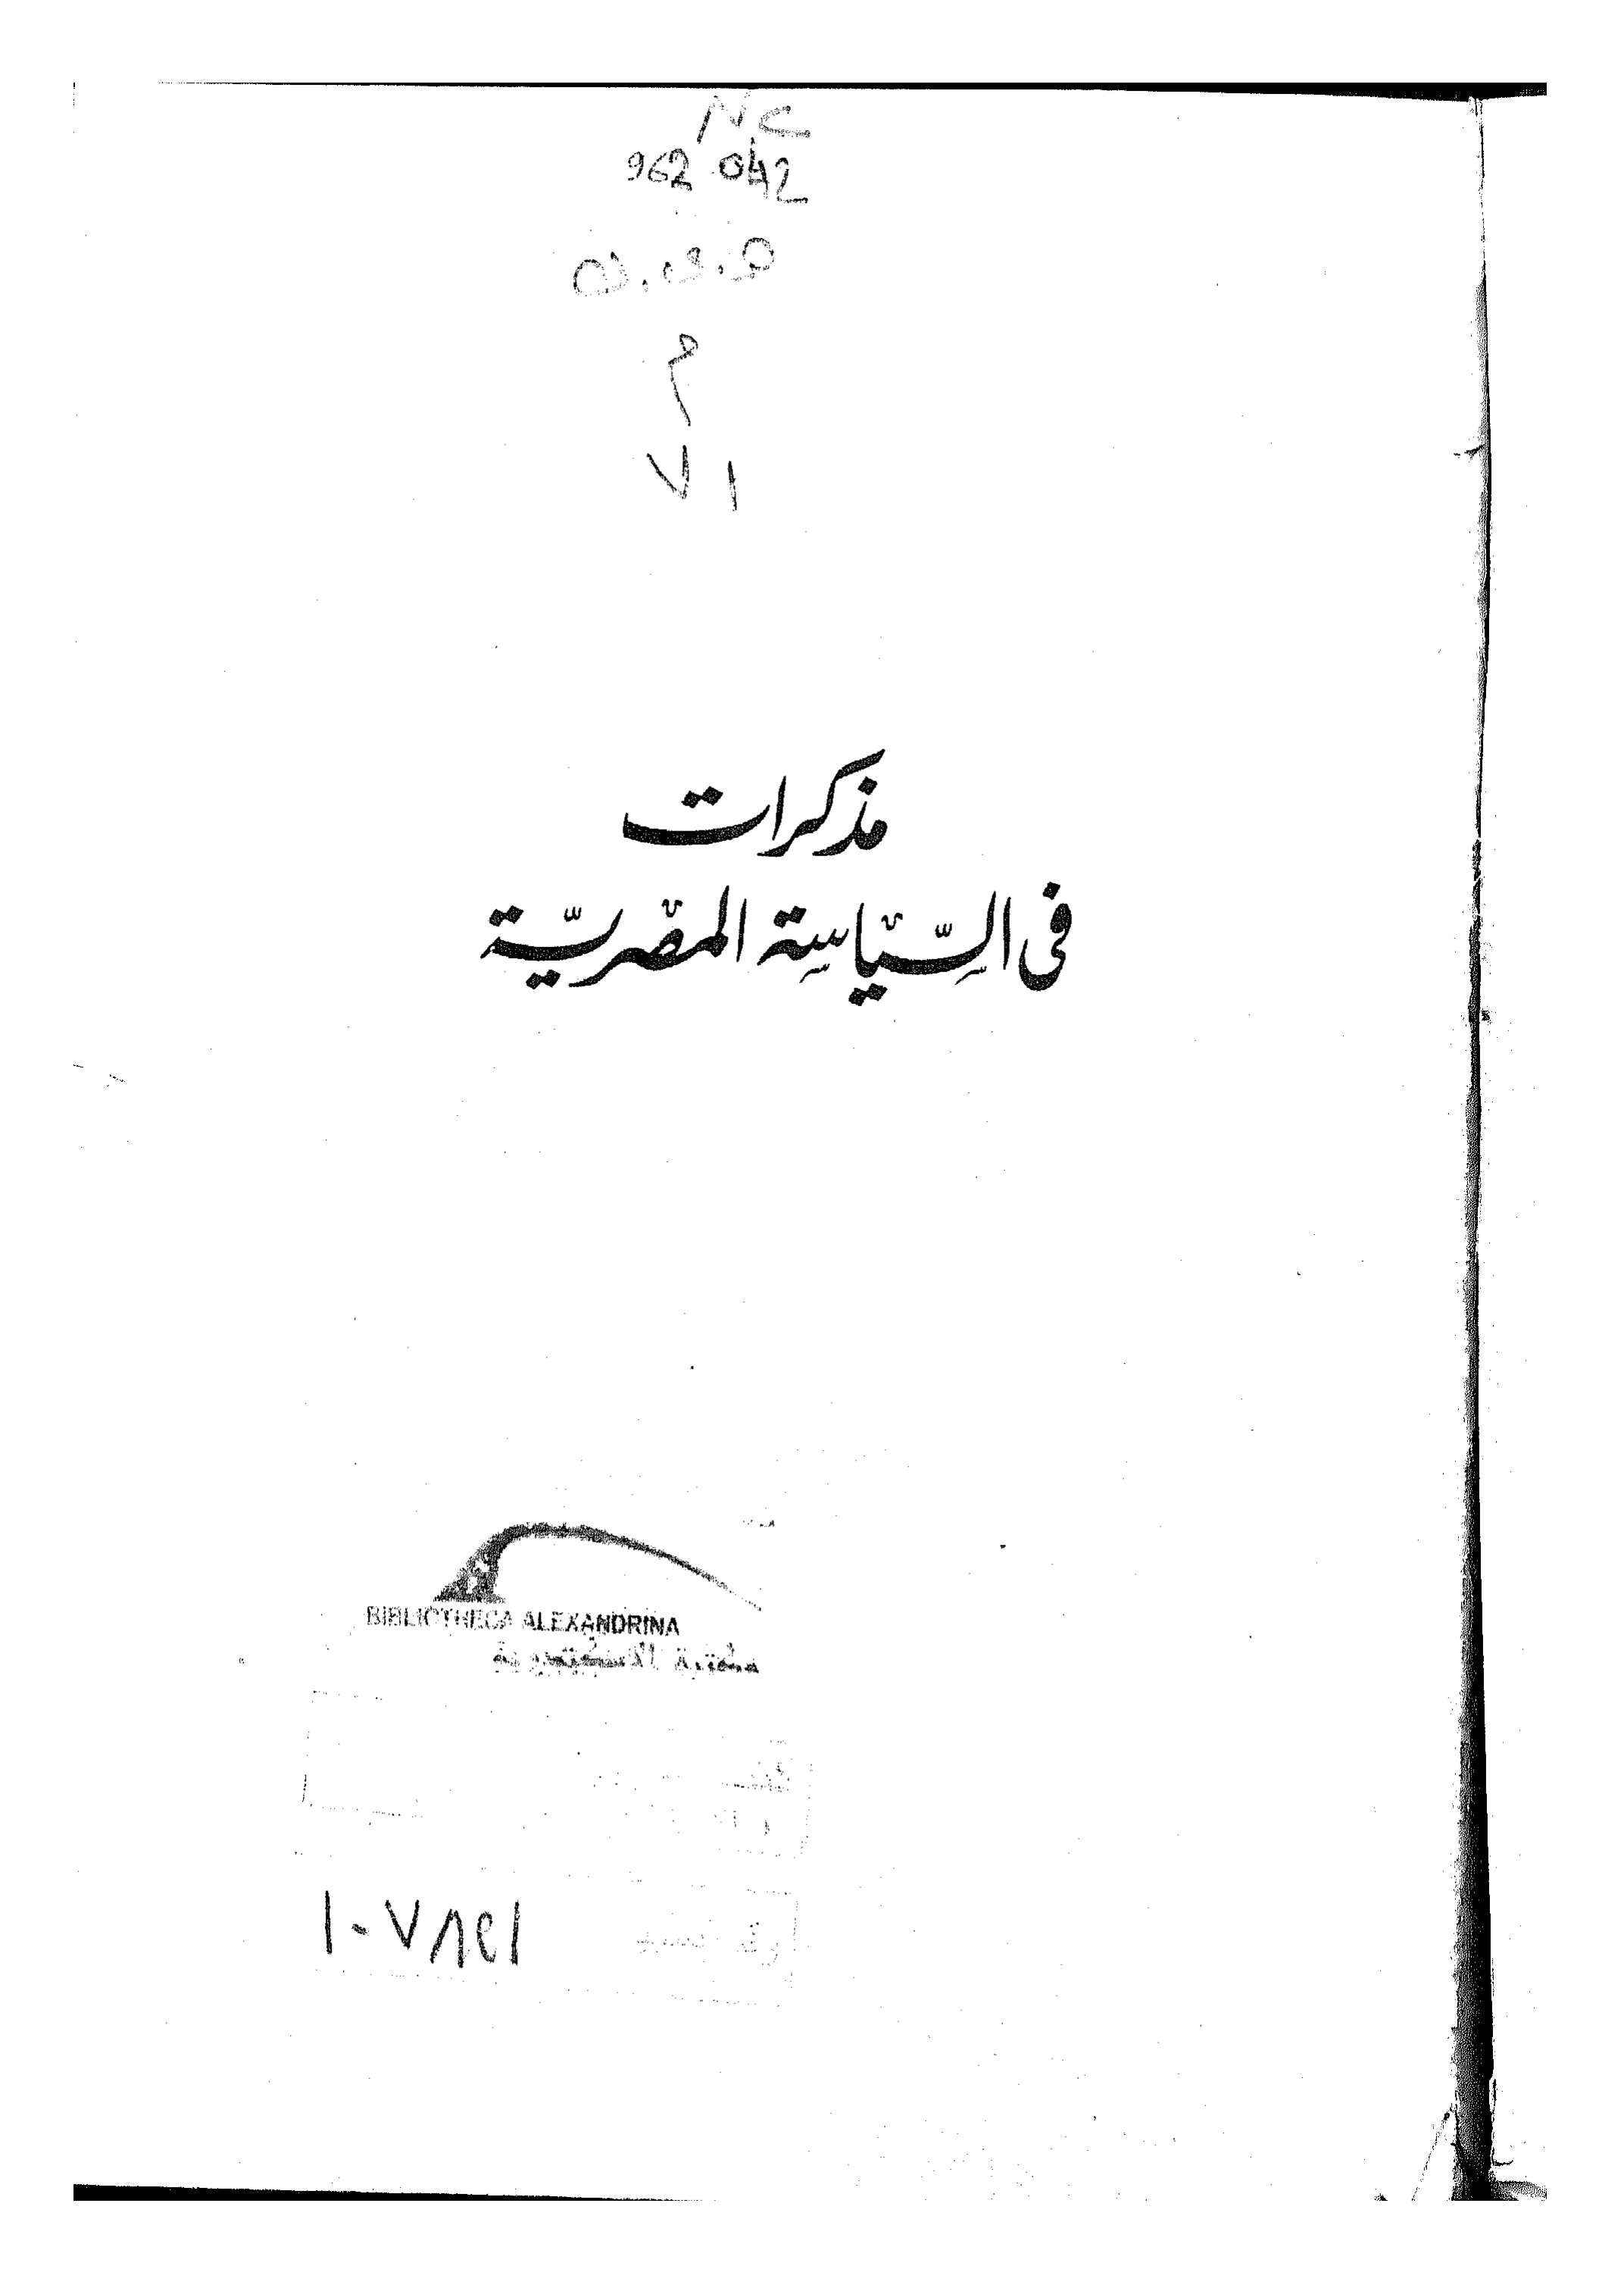 NC
962 042
م
٧١
مذكرات
فى السِّيَاسِة المصْريّة
BIBLIOTHECA ALEXANDRINA
مكتبة الاسكندرية
١٠٧٨٤١